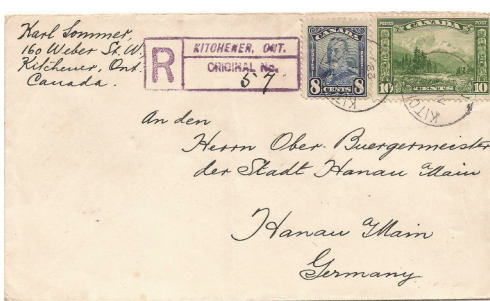 Karl Sommer,
160 Weber St. W.
Kitchener, Ont.
Canada.
R
KITCHENER, ONT.
ORIGINAL No.
57
CANADA
8 CENTS 8
POSTES POSTAGE
CANADA
10 CENTS 10
KITC
An den
Herrn Ober. Buergermeister
der Stadt Hanau Main
Hanau Main
Germany.